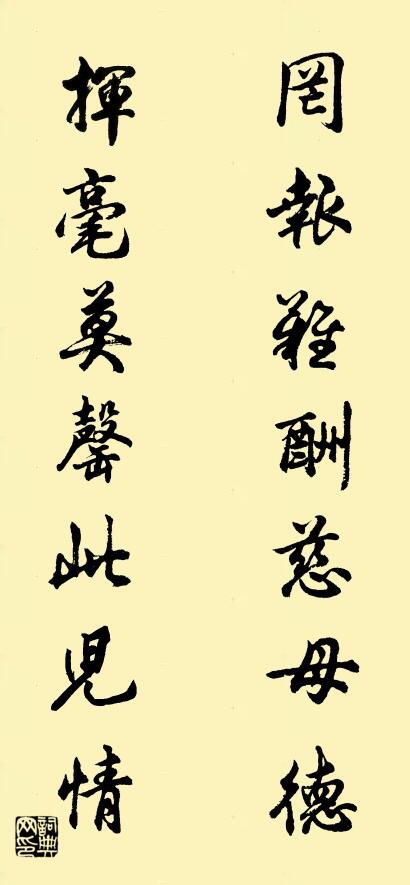 罔報難酬慈母德
揮毫莫罄此兒情
詞典網印